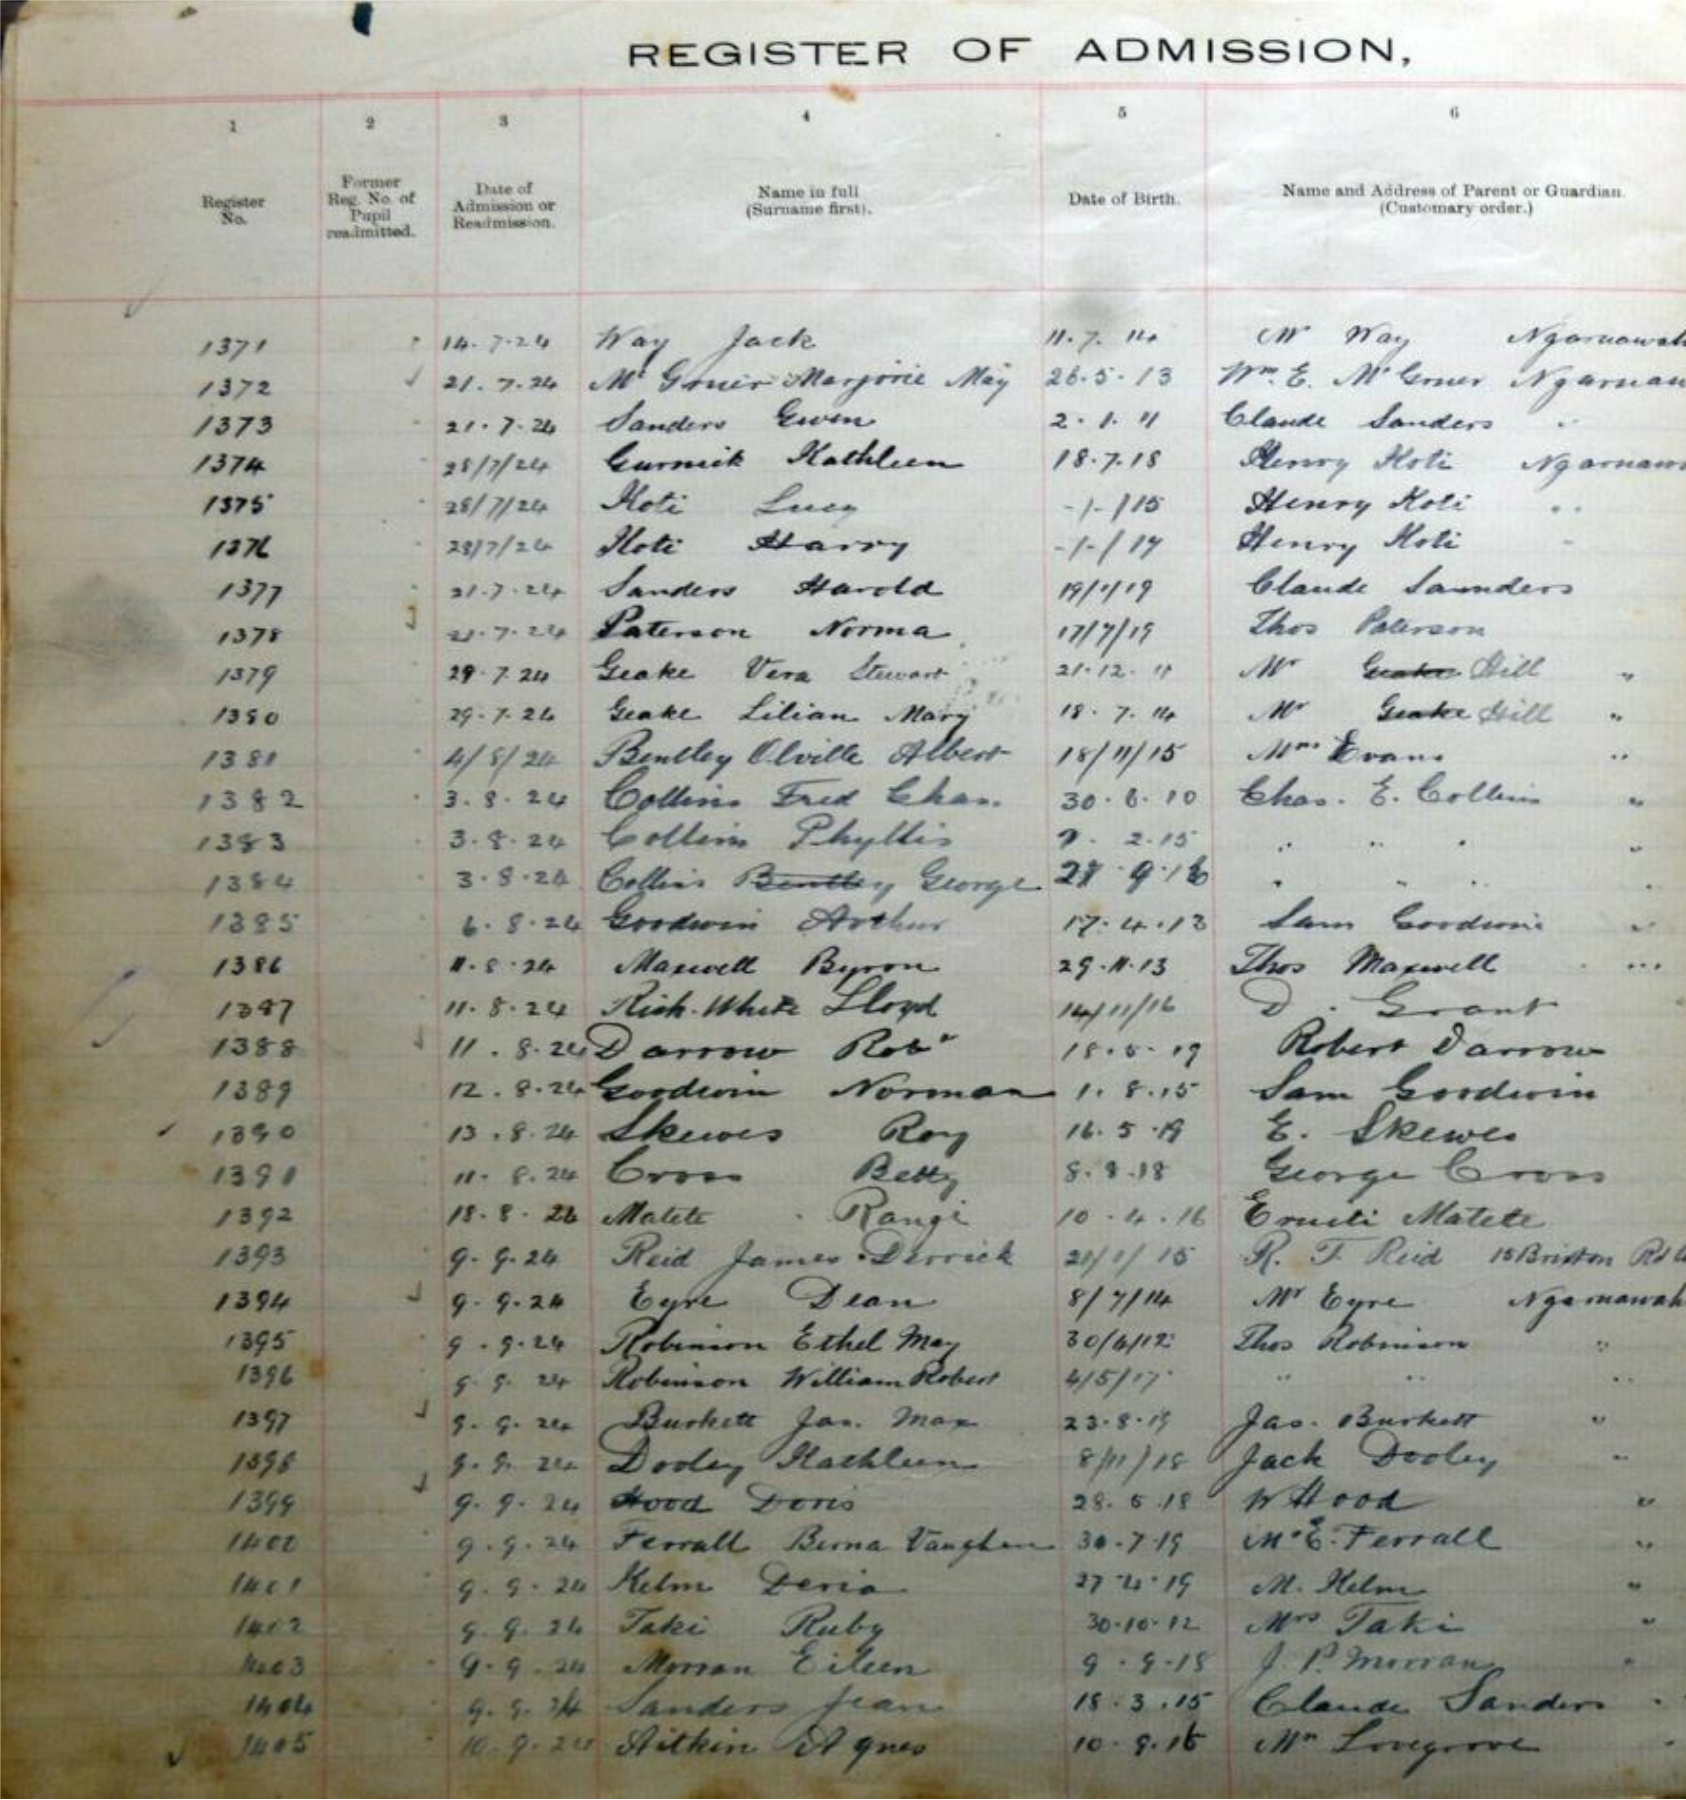 REGISTER OF ADMISSION,
1 2 3 4 5 6
Register No. Former Reg. No. of Pupil readmitted. Date of Admission or Readmission. Name in full (Surname first). Date of Birth. Name and Address of Parent or Guardian. (Customary order.)
1371 14.7.24 Way Jack 11.7.14 Mr Way Ngaruawah
1372 21.7.24 Marjorie May 26.5.13 Wm. E. Ngaruaw
1373 21.7.24 Sanders Gwen 2.1.11 Claude Sanders "
1374 28/7/24 Gurnick Kathleen 18.7.18 Henry Koti Ngaruaw
1375 28/7/24 Koti Lucy -/-/15 Henry Koti "
1376 28/7/24 Koti Harry -/-/17 Henry Koti "
1377 21.7.24 Sanders Harold 19/1/19 Claude Saunders
1378 21.7.24 Paterson Norma 17/7/19 Thos Paterson
1379 29.7.24 Geake Vera Stewart 21.12.11 Mr Geake Hill "
1380 29.7.24 Geake Lilian Mary 18.7.14 Mr Geake Hill "
1381 4/8/24 Bentley Olville Albert 18/11/15 Mrs Evans "
1382 3.8.24 Collins Fred Chas. 30.6.10 Chas. E. Collins "
1383 3.8.24 Collins Phyllis 2.15 " " " "
1384 3.8.24 Collins Bentley George 9.16 " " " "
1385 6.8.24 Goodwin Arthur 17.4.13 Sam Goodwin "
1386 11.8.24 Maxwell Byron 29.11.13 Thos Maxwell "
1387 11.8.24 Rich-White Lloyd 14/11/16 D. Grant
1388 11.8.24 Darrow Robt 18.5.19 Robert Darrow
1389 12.8.24 Goodwin Norman 1.8.15 Sam Goodwin
1390 13.8.24 Skewes Roy 16.5.19 E. Skewes
1391 11.8.24 Cross Betty 8.8.18 George Cross
1392 18.8.24 Matete Rangi 10.4.16 Erueti Matete
1393 9.9.24 Reid James Derrick 21/1/15 R. T. Reid 15 Brixton Rd
1394 9.9.24 Eyre Dean 8/7/14 Mr Eyre Ngaruawah
1395 9.9.24 Robinson Ethel May 30/6/12 Thos Robinson "
1396 9.9.24 Robinson William Robert 4/5/17 " " "
1397 9.9.24 Burkett Jas. Max 23.8.19 Jas. Burkett "
1398 9.9.24 Dooley Kathleen 8/11/18 Jack Dooley "
1399 9.9.24 Hood Doris 28.5.18 W Hood "
1400 9.9.24 Ferrall Berna Vaughan 30.7.19 E. Ferrall "
1401 9.9.24 Kelm 27.4.19 M. Kelm "
1402 9.9.24 Taki Ruby 30.10.12 Mrs Taki "
1403 9.9.24 Morran Eileen 9.9.18 J. P. Morran "
1404 9.9.24 Sanders Jean 18.3.15 Claude Sanders "
1405 10.9.24 Aitkin Agnes 10.9.16 Mr Lovegrove "